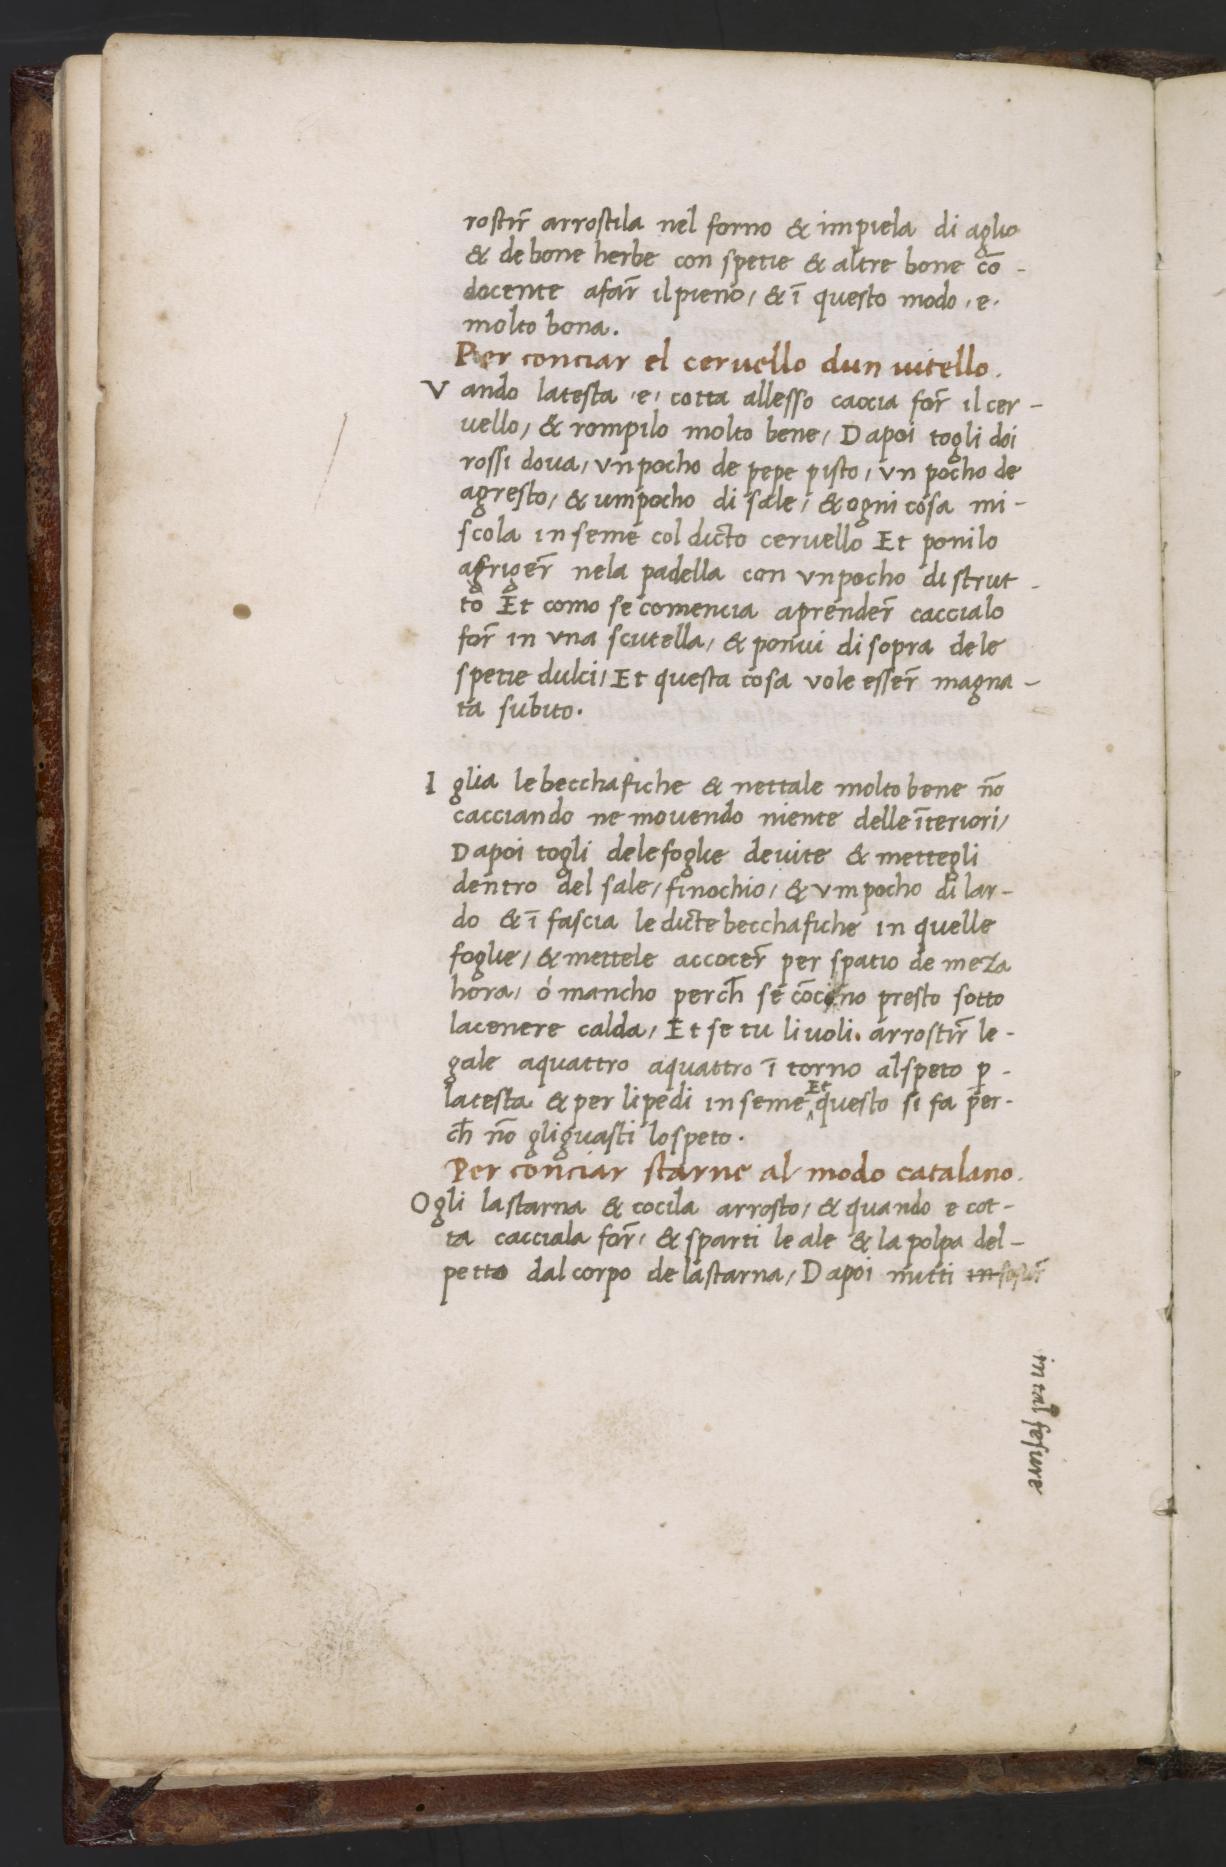 rostir̃ arrostila nel forno & impiela di aglio
& de bone herbe con spetie & altre bone cõ-
docente afar̃ il pieno, & ĩ questo modo .e.
molto bona.
Per conciar el cervello dun uitello.
V ando latesta .e. cotta allesso caccia for̃ il cer-
uello, & rompilo molto bene, Dapoi togli doi
rossi doua, vn pocho de pepe pisto, vn pocho de
agresto, & umpocho di sale, & ogni cosa mi-
scola in seme col dicto ceruello Et ponilo
afriger̃ nela padella con vn pocho di strut-
to Et como se comencia aprender̃ caccialo
for̃ in vna scutella, & ponui di sopra dele
spetie dulci, Et questa cosa vole esser̃ magna-
ta subito.
I glia le becchafiche & nettale molto bene nõ
cacciando ne movendo niente delle ĩteriori,
Dapoi togli dele foglie de uite & mettegli
dentro del sale, finochio, & vm pocho di lar-
do & ĩ fascia le dicte becchafiche in quelle
foglie, & mettele accocer̃ per spatio de meza
hora, o mancho perch̃ se cõcino presto sotto
lacenere calda, Et se tu li uoli. arrostir̃ le-
gale aquattro aquattro ĩ torno al speto p̱-
latesta & per li pedi in seme ^Et questo si fa per-
ch̃ nõ gli guasti lo speto.
Per conciar starne al modo catalano.
Ogli la starna & cocila arrosto, & quando e cot-
ta cacciala for̃, & sparti le ale & la polpa del-
petto dal corpo de la starna, Dapoi mitti in
in tal fesure